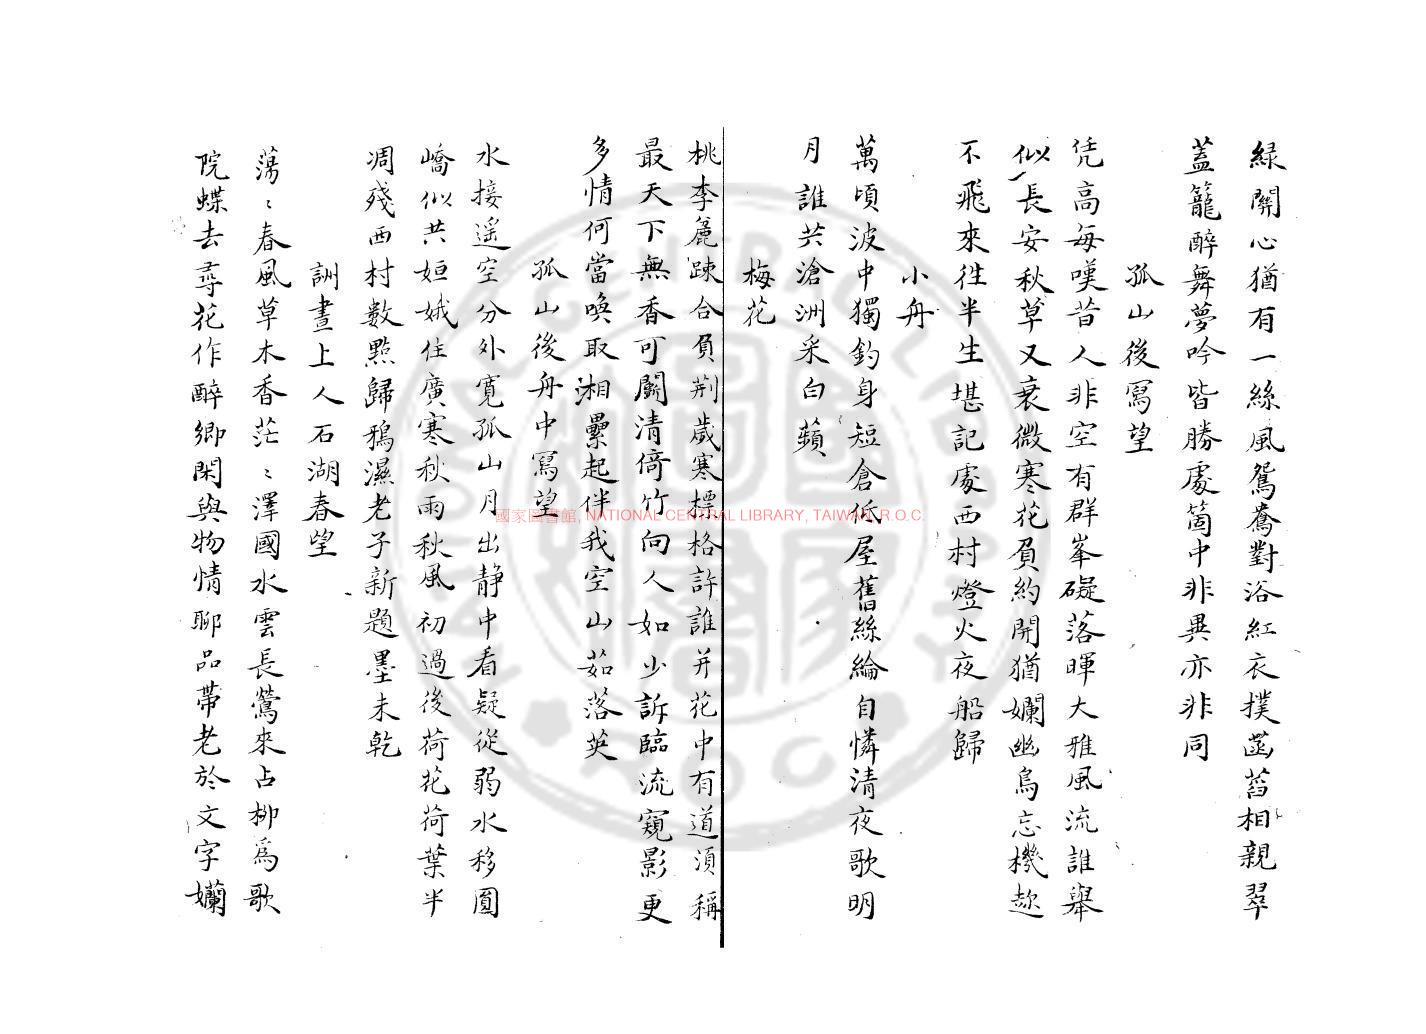 緑關心猶有一絲風鴛鴦對浴紅衣撲菡萏相親翠
蓋籠醉舞夢吟皆勝處箇中非異亦非同
孤山後寫望
凭高每嘆昔人非空有群峯礙落暉大雅風流誰舉
似長安秋草又衰微寒花負約開猶嬾幽鳥忘機趂
不飛來徃半生堪記處西村燈火夜船歸
小舟
萬頃波中獨釣身短倉低屋舊絲綸自憐清夜歌明
月誰共滄洲采白蘋
梅花
桃李麄踈合負荆歲寒標格許誰并花中有道湏稱
最天下無香可鬭清倚竹向人如少訴臨流窺影更
多情何當喚取湘纍起伴我空山茹落英
孤山後舟中寫望
水接遥空分外寛孤山月出静中看疑從弱水移圓
嶠似共姮娥住廣寒秋雨秋風初過後荷花荷葉半
凋殘西村數點歸鴉濕老子新題墨未乾
詶晝上人石湖春望
蕩〻春風草木香茫〻澤國水雲長鶯來占栁為歌
院蝶去尋花作醉鄉閑與物情聊品帶老於文字嬾
國家圖書館, NATIONAL CENTRAL LIBRARY, TAIWAN, R.O.C.